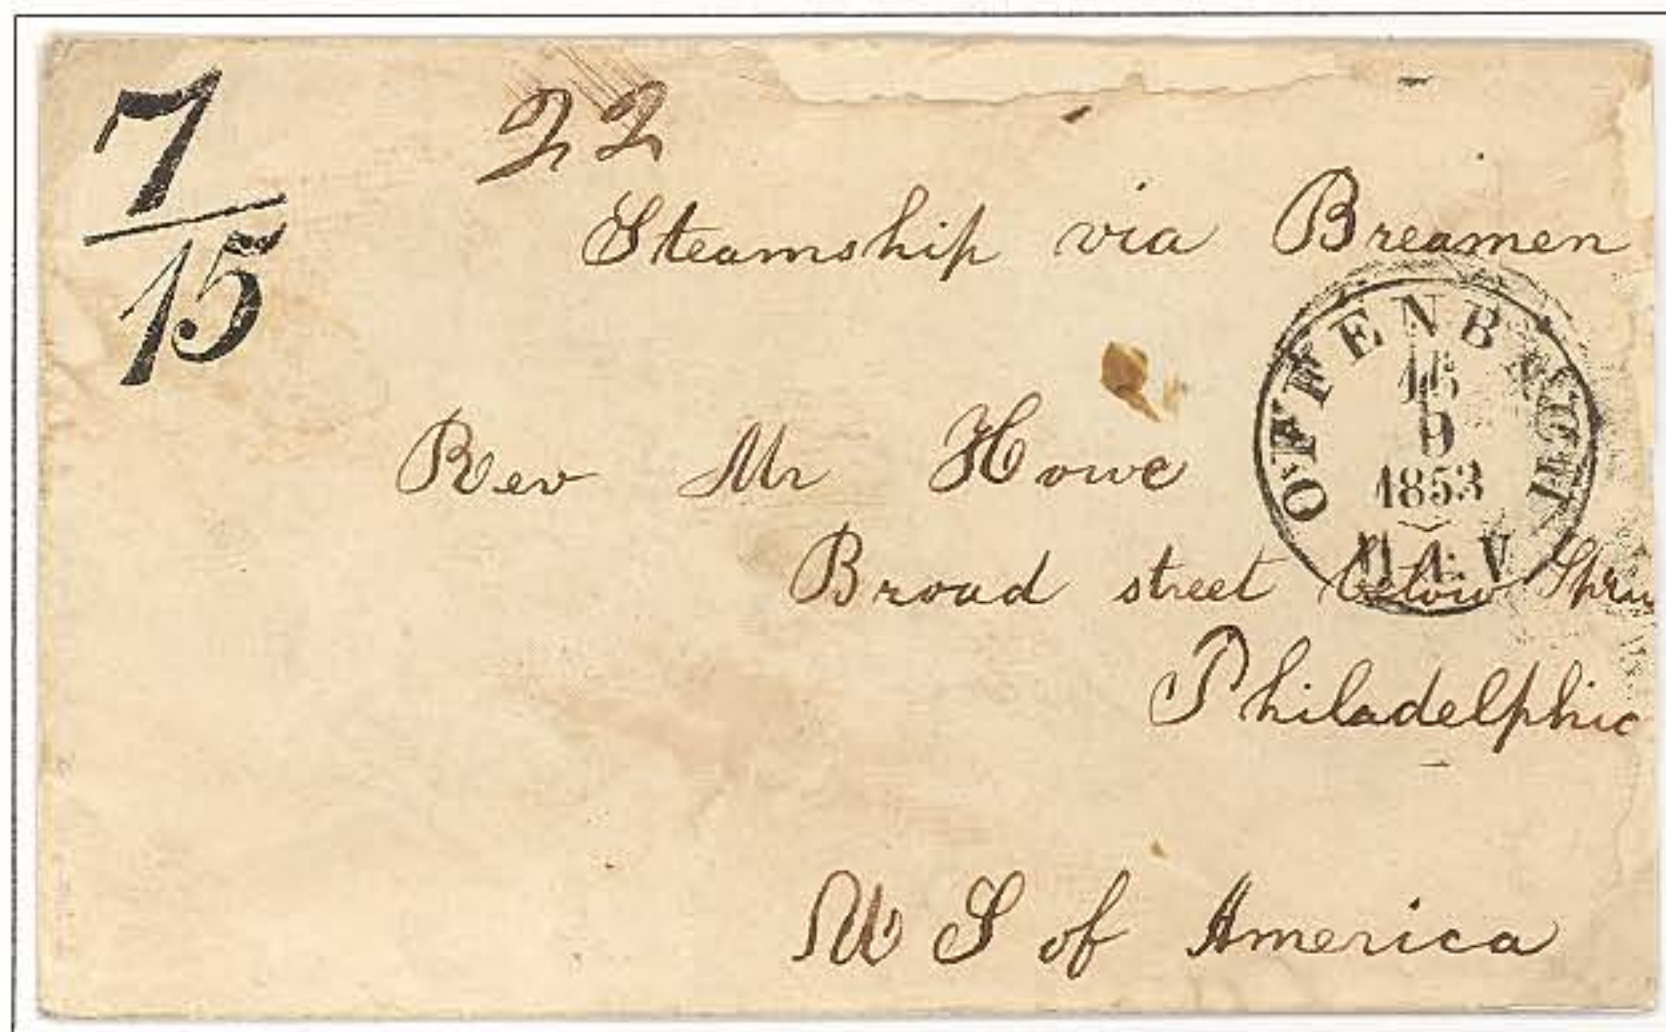 7
15
22
Steamship via Breamen
OFFENBACH
9
1853
Rev Mr Howe
Broad street below
Philadelphia
U S of America